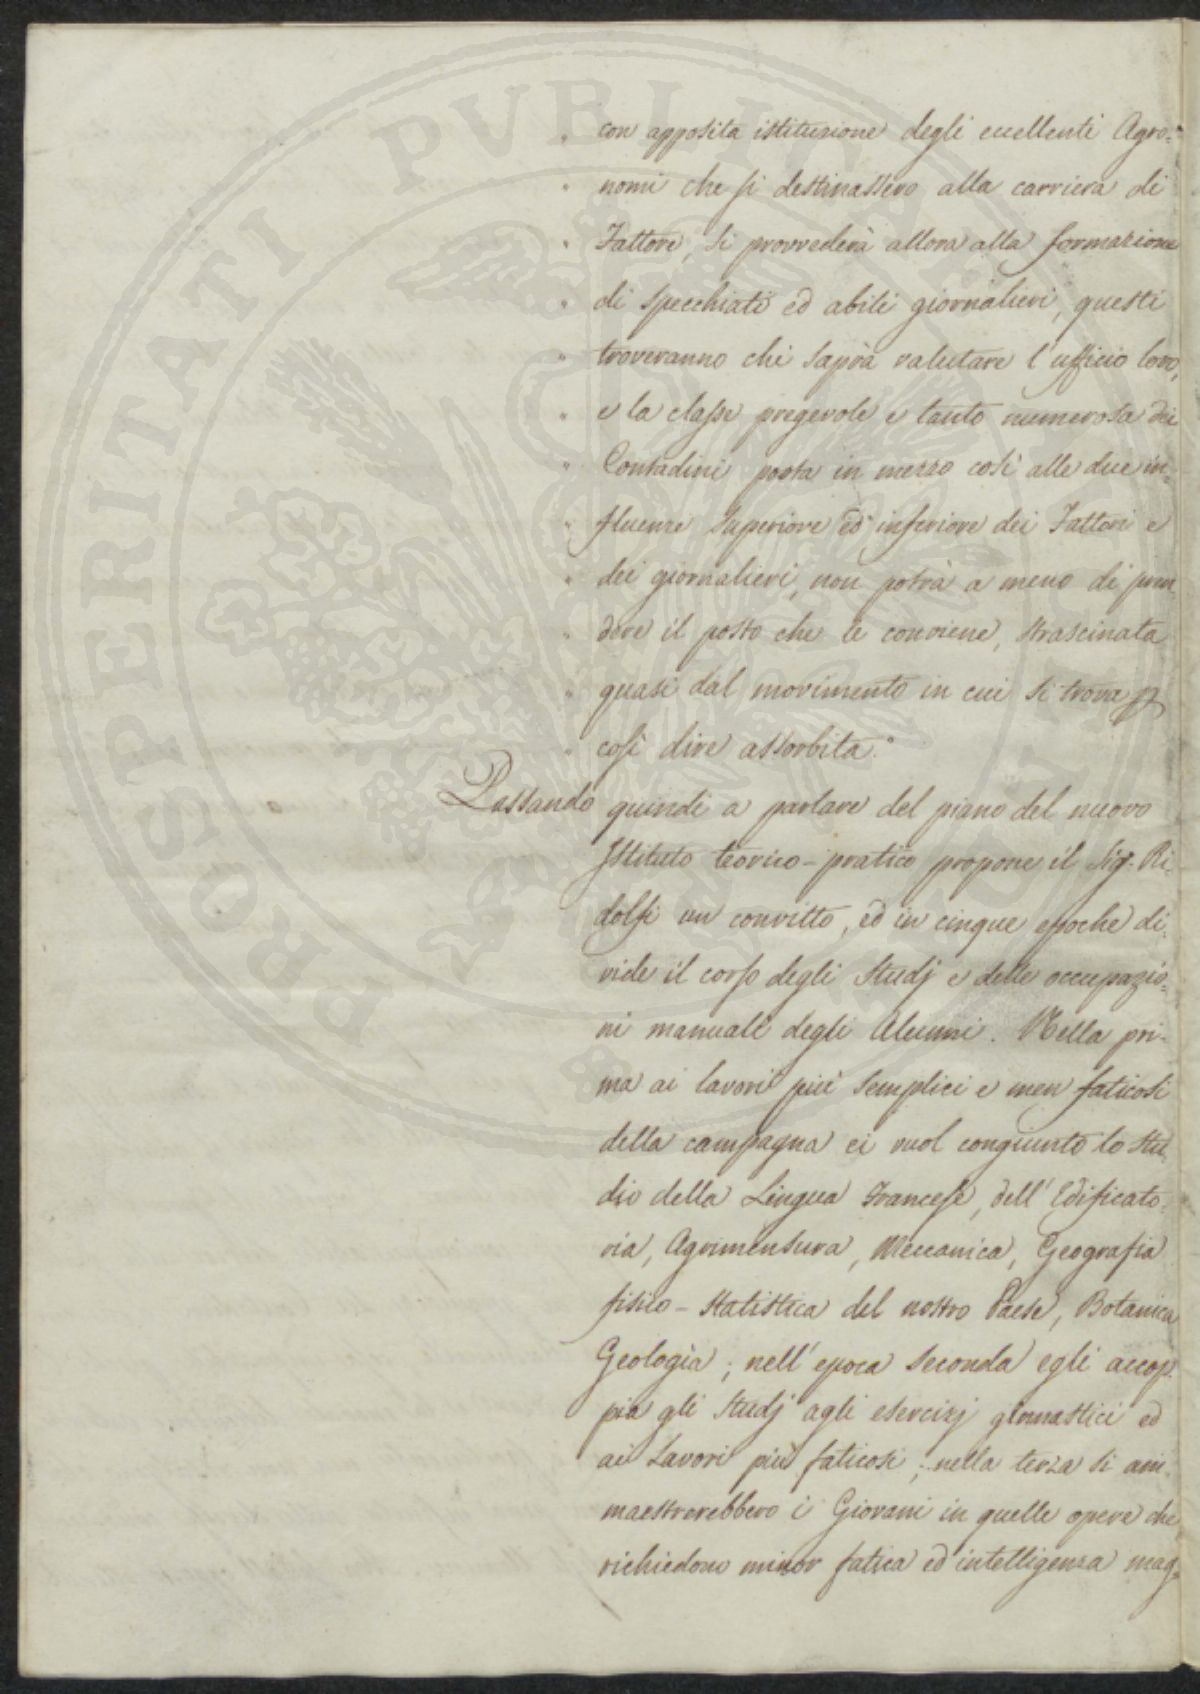 " con apposita istituzione degli eccellenti Agro=
" nomi che si destinassero alla carriera di
" Fattore, si provvederà allora alla formazione
" di specchiati ed abili giornalieri, questi
" troveranno chi saprà valutare l'ufficio loro,
" e la classe pregevole e tanto numerosa dei
" Contadini posta in mezzo così alle due in=
" fluenze superiore ed inferiore dei Fattori e
" dei giornalieri, non potrà a meno di pren
" dere il posto che le conviene, strascinata
" quasi dal movimento in cui si trova p
" così dire assorbita."
Passando quindi a parlare del piano del nuovo
Istituto teorico-pratico propone il Sig. Ri=
dolfi un convitto, ed in cinque epoche di=
vide il corso degli Studj e delle occupazio=
ni manuali degli Alunni. Nella pri=
ma ai lavori più semplici e men faticosi
della campagna ei vuol congiunto lo Stu=
dio della Lingua Francese, dell'Edificato=
ria, Agrimensura, Meccanica, Geografia
fisico-statistica del nostro Paese, Botanica
Geologia; nell'epoca seconda egli accop=
pia gli Studj agli esercizj ginnastici ed
ai Lavori più faticosi; nella terza si am=
maestrerebbero i Giovani in quelle opere che
richiedono minor fatica ed intelligenza mag=
PROSPERITATI PUBLICAE